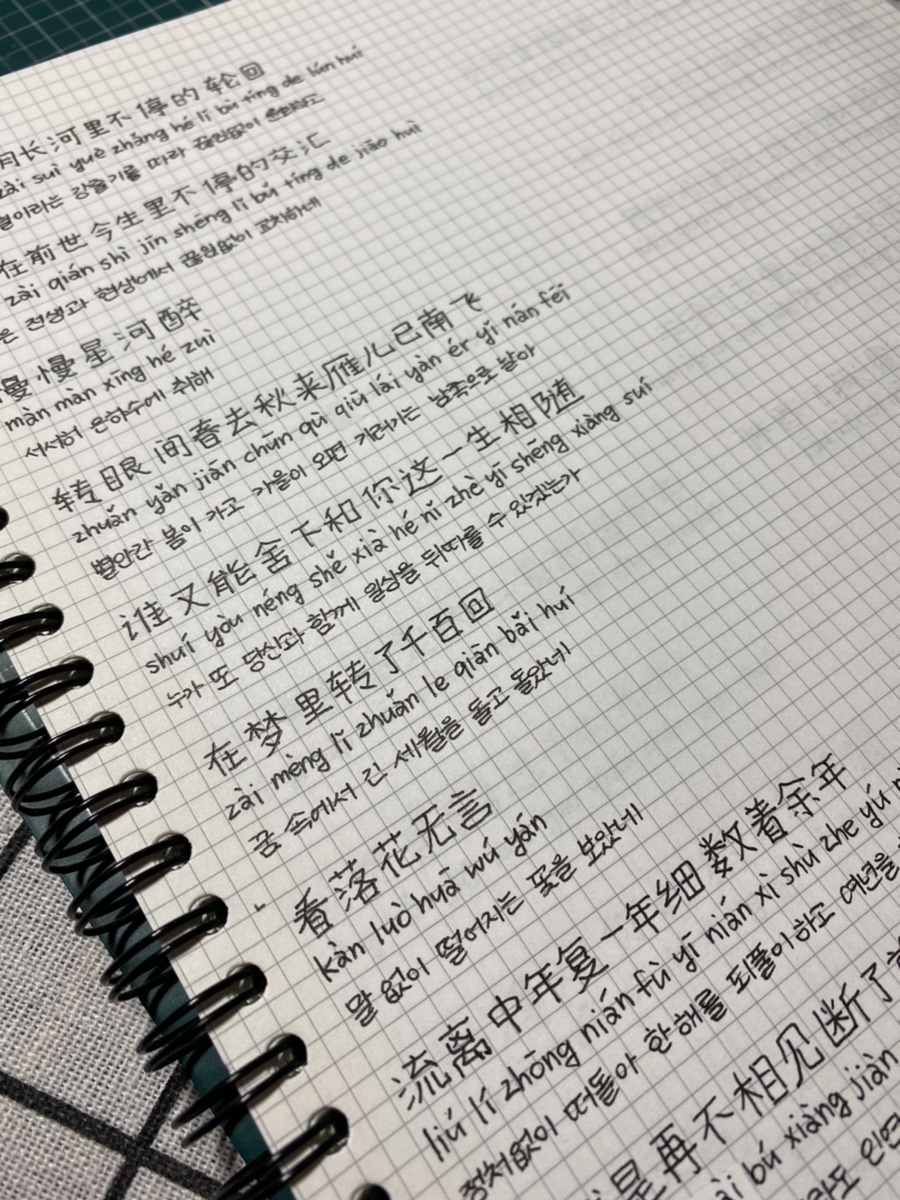 月长河里不停的轮回
zài suì yuè zhǎng hé lǐ bù tíng de lún huí
강줄기를 따라 끊임없이 윤회하고
在前世今生里不停的交汇
zài qián shì jīn shēng lǐ bù tíng de jiāo huì
은 전생과 현생에서 끊임없이 교차하네
漫慢星河醉
màn màn xīng hé zuì
서서히 은하수에 취해
转眼间春去秋来雁儿已南飞
zhuǎn yǎn jiān chūn qù qiū lái yàn ér yǐ nán fēi
별안간 봄이 가고 가을이 오면 기러기는 남쪽으로 날아
谁又能舍下和你这一生相随
shuí yòu néng shě xià hé nǐ zhè yī shēng xiàng suí
누가 또 당신과 함께 일상을 뒤따를 수 있겠는가
在梦里转了千百回
zài mèng lǐ zhuǎn le qiān bǎi huí
꿈 속에서 긴 세월을 돌고 돌았네
看落花无言
kàn luò huā wú yán
말 없이 떨어지는 꽃을 보았네
流离中年复一年细数着余年
liú lí zhōng nián fù yī nián xì shù zhe yú
정처없이 떠돌아 한 해를 되풀이하고 여년을
是再不相见断了
bú xiàng jiàn